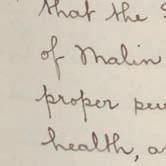 that the
of Malin
proper
health, a